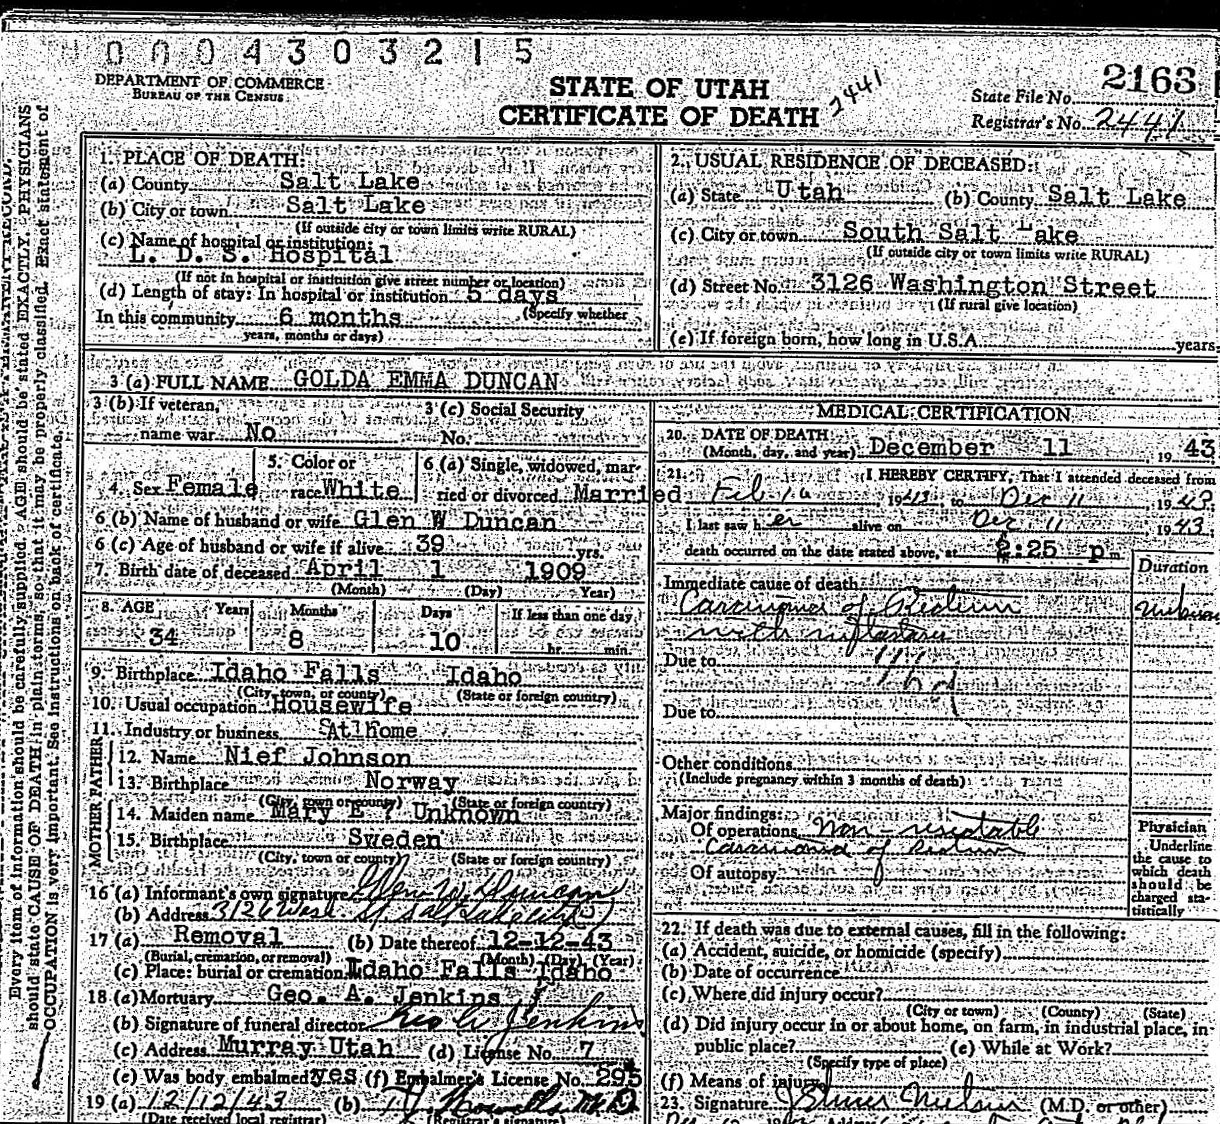 0004303215
DEPARTMENT OF COMMERCE
BUREAU OF THE CENSUS
STATE OF UTAH
CERTIFICATE OF DEATH
2441
2163
State File No.
Registrar's No. 2441
Every item of information should be carefully supplied. AGE should be stated EXACTLY. PHYSICIANS
should state CAUSE OF DEATH in plain terms, so that it may be properly classified. Exact statement of
OCCUPATION is very important. See instructions on back of certificate.
1. PLACE OF DEATH:
(a) County Salt Lake
(b) City or town Salt Lake
(If outside city or town limits write RURAL)
(c) Name of hospital or institution:
L. D. S. Hospital
(If not in hospital or institution give street number or location)
(d) Length of stay: In hospital or institution 5 days
(Specify whether
In this community 6 months
years, months or days)
2. USUAL RESIDENCE OF DECEASED:
(a) State Utah (b) County Salt Lake
(c) City or town South Salt Lake
(If outside city or town limits write RURAL)
(d) Street No. 3126 Washington Street
(If rural give location)
(e) If foreign born, how long in U.S.A. years
3 (a) FULL NAME GOLDA EMMA DUNCAN
3 (b) If veteran, 3 (c) Social Security
name war No No.
4. Sex Female 5. Color or race White 6 (a) Single, widowed, mar-
ried or divorced Married
6 (b) Name of husband or wife Glen W Duncan
6 (c) Age of husband or wife if alive 39 yrs.
7. Birth date of deceased April 1 1909
(Month) (Day) Year)
8. AGE Years Months Days If less than one day
34 8 10 hr. min.
9. Birthplace Idaho Falls Idaho
(City, town, or county) (State or foreign country)
10. Usual occupation Housewife
11. Industry or business At home
FATHER
12. Name Nief Johnson
13. Birthplace Norway
(City, town or county) (State or foreign country)
MOTHER
14. Maiden name Mary E ? Unknown
15. Birthplace Sweden
(City, town or county) (State or foreign country)
16 (a) Informant's own signature Glen W. Duncan
(b) Address 3126 Wash. St. Salt Lake City
17 (a) Removal (b) Date thereof 12-12-43
(Burial, cremation, or removal) (Month) (Day) (Year)
(c) Place: burial or cremation Idaho Falls Idaho
18 (a) Mortuary Geo. A. Jenkins
(b) Signature of funeral director Geo A Jenkins
(c) Address Murray Utah (d) License No. 7
(e) Was body embalmed? yes (f) Embalmer's License No. 295
19 (a) 12/12/43 (b) M.D.
(Date received local registrar) (Registrar's signature)
MEDICAL CERTIFICATION
20. DATE OF DEATH:
(Month, day, and year) December 11 1943
21. I HEREBY CERTIFY, That I attended deceased from
Feb 1943, to Dec 11 1943
I last saw her alive on Dec 11 1943
death occurred on the date stated above, at 2:25 p m
Duration
Immediate cause of death
Carcinoma of Rectum
with
Due to
Due to
Other conditions
(Include pregnancy within 3 months of death)
Major findings:
Of operations Non-resectable
Carcinoma of rectum
Of autopsy
Physician
Underline
the cause to
which death
should be
charged sta-
tistically
22. If death was due to external causes, fill in the following:
(a) Accident, suicide, or homicide (specify)
(b) Date of occurrence
(c) Where did injury occur?
(City or town) (County) (State)
(d) Did injury occur in or about home, on farm, in industrial place, in
public place? (e) While at Work?
(Specify type of place)
(f) Means of injury
23. Signature (M.D. or other)